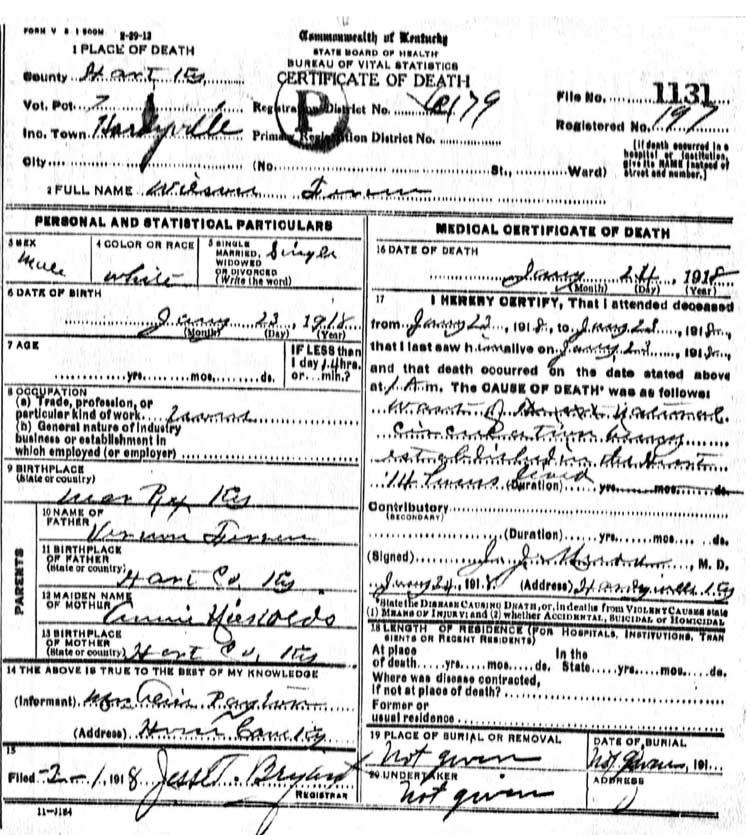 FORM V S 1 500M 8-29-13
Commonwealth of Kentucky
STATE BOARD OF HEALTH
BUREAU OF VITAL STATISTICS
CERTIFICATE OF DEATH
1 PLACE OF DEATH
County Hart Ky
Vot. Pct. 7
Inc. Town Hardyville
City
Registration District No. 6179
Primary Registration District No.
(No. St., Ward)
File No. 1131
Registered No. 197
[If death occurred in a
hospital or institution,
give its NAME instead of
street and number.]
P
2 FULL NAME Wilson
PERSONAL AND STATISTICAL PARTICULARS
3 SEX
Male
4 COLOR OR RACE
White
5 SINGLE
MARRIED,
WIDOWED
OR DIVORCED
(Write the word)
Single
6 DATE OF BIRTH
Jany 23, 1918
(Month) (Day) (Year)
7 AGE
yrs. mos. ds.
IF LESS than
1 day 14 hrs.
or min.?
8 OCCUPATION
(a) Trade, profession, or
particular kind of work
(b) General nature of industry
business or establishment in
which employed (or employer)
9 BIRTHPLACE
(State or country)
near Rex Ky
PARENTS
10 NAME OF
FATHER
Vernon
11 BIRTHPLACE
OF FATHER
(State or country)
Hart Co, Ky
12 MAIDEN NAME
OF MOTHUR
Annie
13 BIRTHPLACE
OF MOTHER
(State or country) Hart Co, Ky
14 THE ABOVE IS TRUE TO THE BEST OF MY KNOWLEDGE
(Informant)
(Address)
15
Filed 2-1, 1918 Jesse T. Bryant
REGISTRAR
11-3184
MEDICAL CERTIFICATE OF DEATH
16 DATE OF DEATH
Jany 24, 1918
(Month) (Day) (Year)
17 I HEREBY CERTIFY, That I attended deceased
from Jany 23, 1918, to Jany 23, 1918,
that I last saw him alive on Jany 23, 1918,
and that death occurred on the date stated above
at 1 A.m. The CAUSE OF DEATH* was as follows:
Want of
established in the
14 lived
(Duration) yrs. mos. ds.
Contributory
(SECONDARY)
(Duration) yrs. mos. ds.
(Signed) J. J. M. D.
Jany 24, 1918 (Address) Hardyville Ky
*State the DISEASE CAUSING DEATH, or, in deaths from VIOLENT CAUSES state
(1) MEANS OF INJURY; and (2) whether ACCIDENTAL, SUICIDAL or HOMICIDAL
18 LENGTH OF RESIDENCE (FOR HOSPITALS, INSTITUTIONS, TRAN
SIENTS OR RECENT RESIDENTS)
At place In the
of death yrs. mos. ds. State yrs. mos. ds.
Where was disease contracted,
If not at place of death?
Former or
usual residence
19 PLACE OF BURIAL OR REMOVAL
Not given
DATE OF BURIAL
Not given, 191
20 UNDERTAKER
Not given
ADDRESS